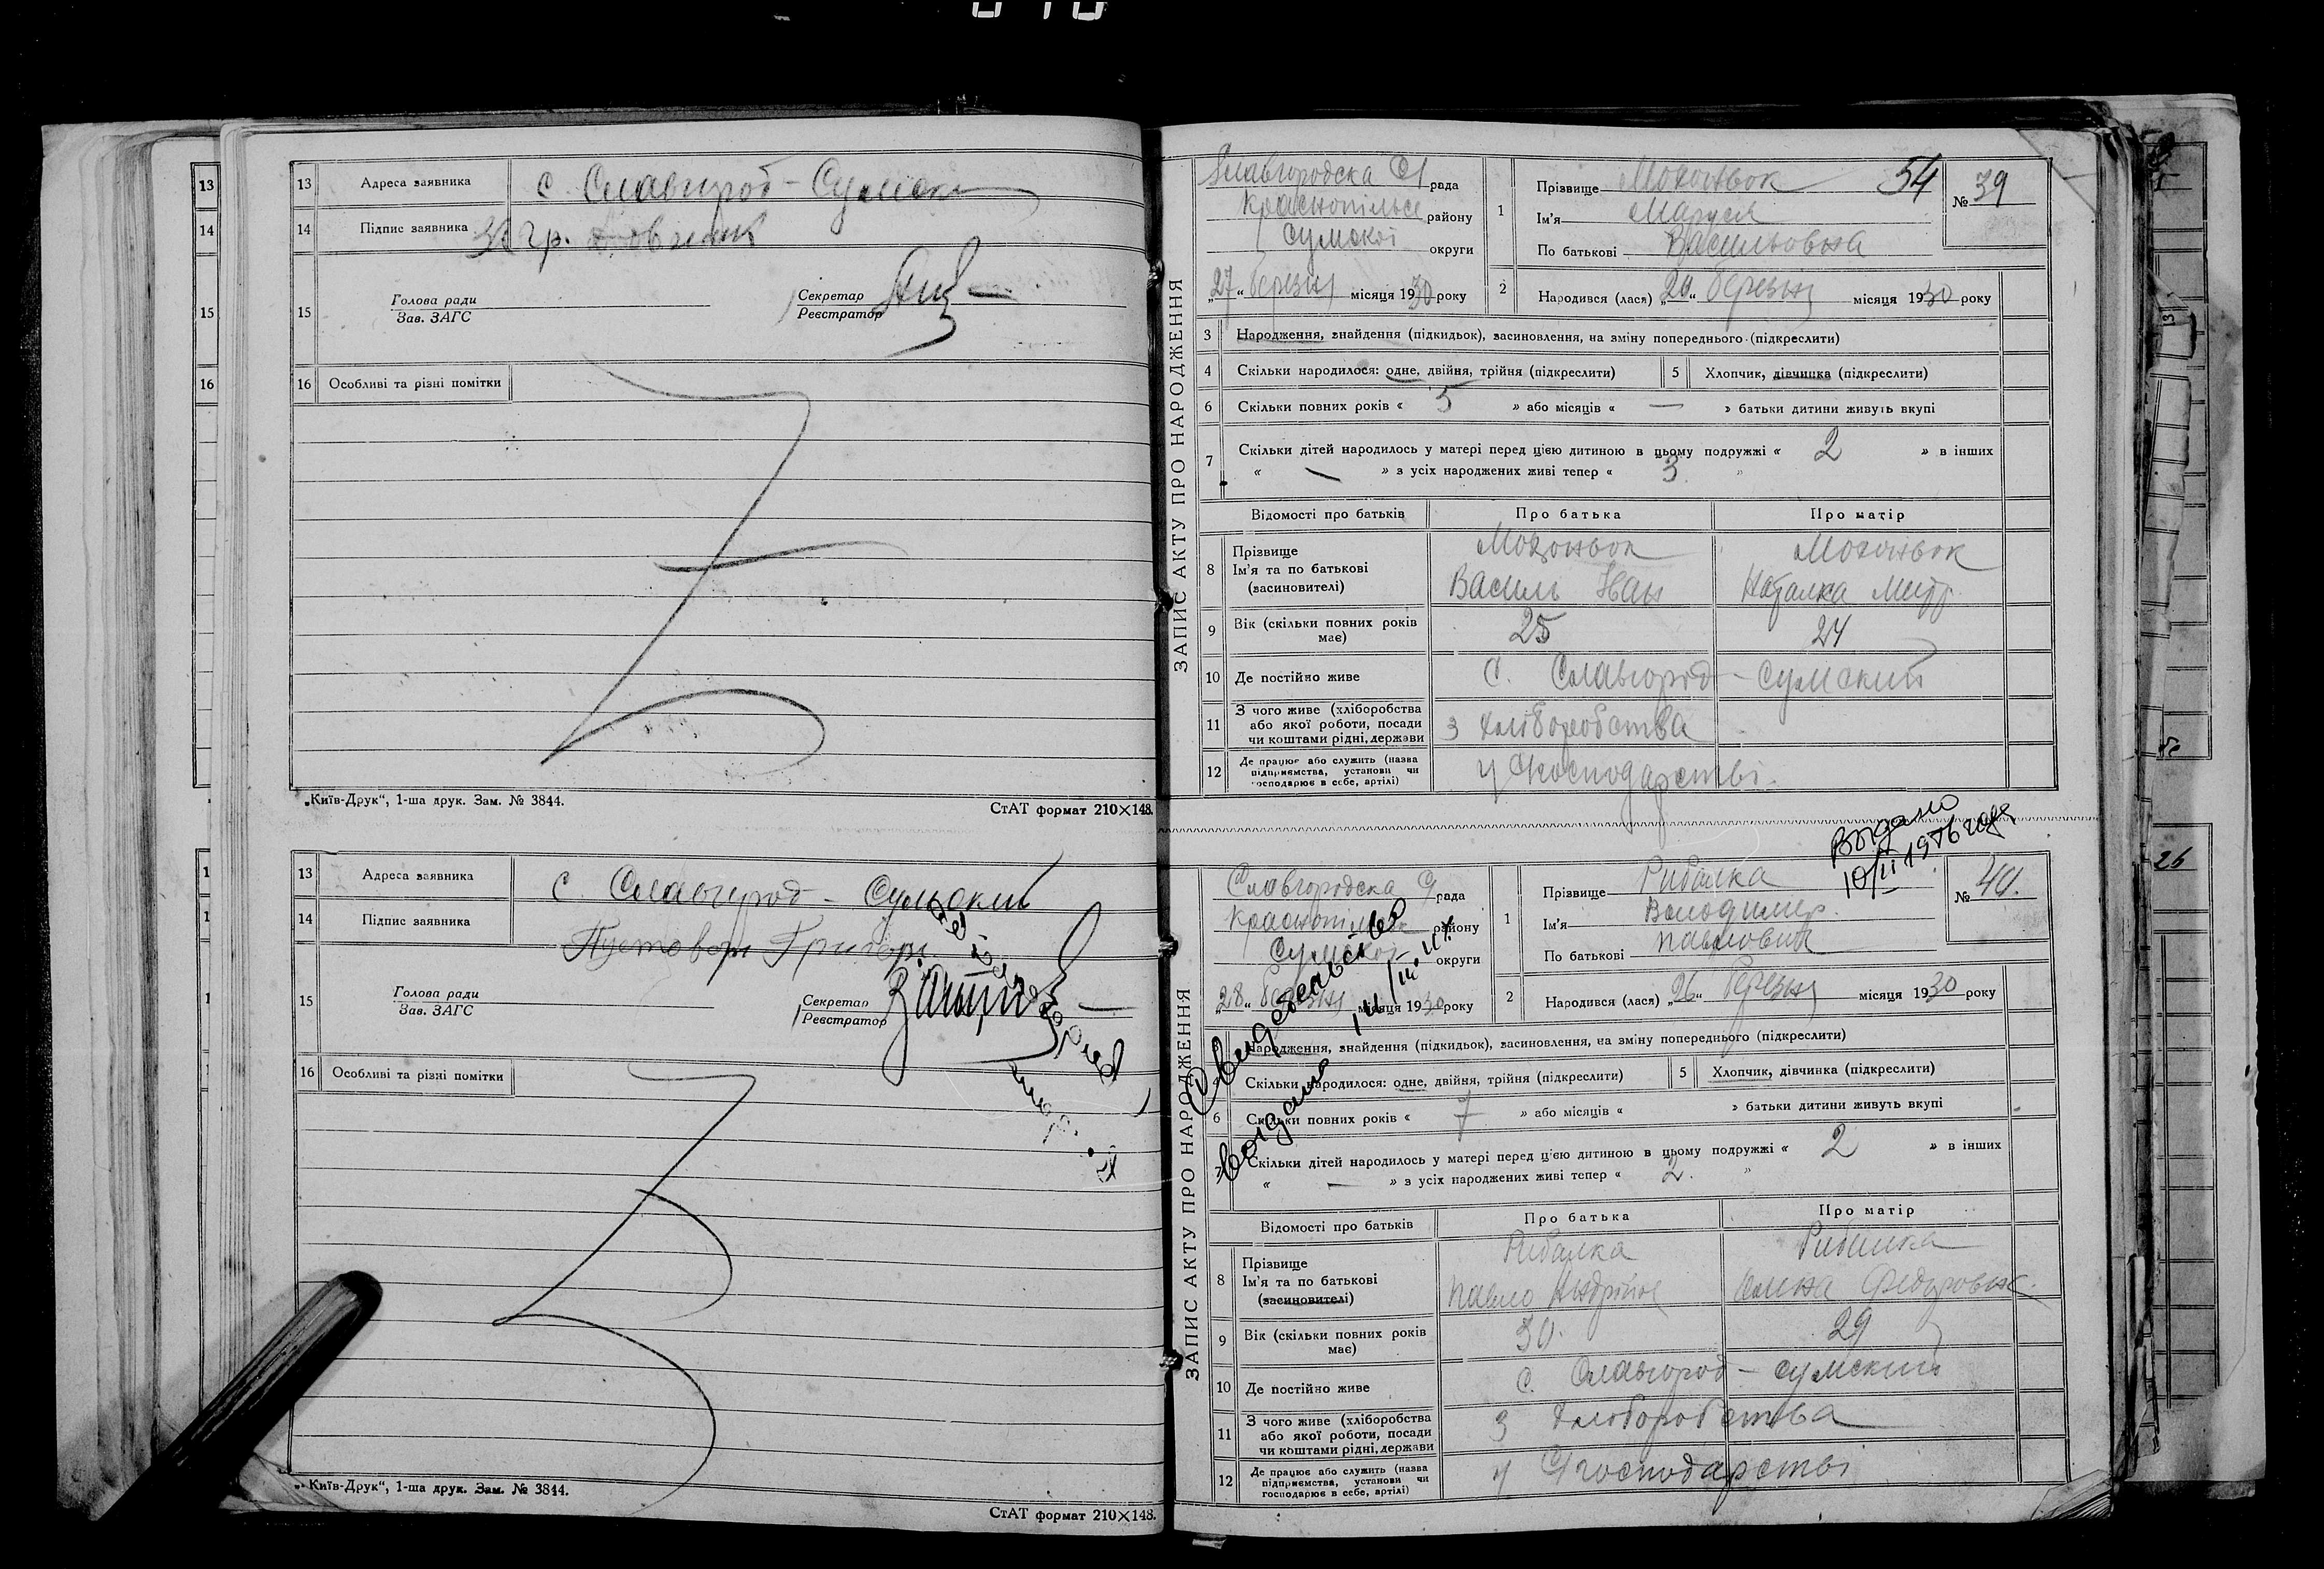 13 Адреса заявника с. Славгород - Сумски
14 Підпис заявника гр.
15 Голова ради
Зав. ЗАГС
Секретар
Реєстратор
16 Особливі та різні помітки
„Київ-Друк“, 1-ша друк. Зам. № 3844.
СтАТ формат 210×148.
13 Адреса заявника с Славгород - Сумский
14 Підпис заявника
15 Голова ради
Зав. ЗАГС
Секретар
Реєстратор
16 Особливі та різні помітки
„Київ-Друк“, 1-ша друк. Зам. № 3844.
СтАТ формат 210×148.
ЗАПИС АКТУ ПРО НАРОДЖЕННЯ
Славгородска С/ рада
Краснопільск району
Сумскої округи
„27“ березня місяця 1930 року
54
№ 39
1 Прізвище
Ім'я Маруся
По батькові Васильовна
2 Народився (лася) „20“ березня місяця 1930 року
3 Народження, знайдення (підкидьок), засиновлення, на зміну попереднього (підкреслити)
4 Скільки народилося: одне, двійня, трійня (підкреслити)
5 Хлопчик, дівчинка (підкреслити)
6 Скільки повних років « 5 » або місяців « — » батьки дитини живуть вкупі
7 Скільки дітей народилось у матері перед цією дитиною в цьому подружжі « 2 » в інших
« — » з усіх народжених живі тепер « 3 »
Відомості про батьків Про батька Про матір
8 Прізвище
Ім'я та по батькові
(засиновителі)
Василь Іван
Наталка Митр.
9 Вік (скільки повних років має) 25 24
10 Де постійно живе с. Славгород - Сумский
11 З чого живе (хліборобства
або якої роботи, посади
чи коштами рідні, держави
з хліборобства
12 Де працює або служить (назва
підприємства, установи чи
господарює в себе, артілі)
у С/господарстві.
ЗАПИС АКТУ ПРО НАРОДЖЕННЯ
Славгородска С/ рада
Краснопільск району
Сумскої округи
„28“ березня місяця 1930 року
Выдано
№ 40.
1 Прізвище Рибалка
Ім'я Володимир.
По батькові Павлович
2 Народився (лася) „26“ березня місяця 1930 року
Свидетельство
выдано
3 Народження, знайдення (підкидьок), засиновлення, на зміну попереднього (підкреслити)
Скільки народилося: одне, двійня, трійня (підкреслити)
5 Хлопчик, дівчинка (підкреслити)
6 Скільки повних років « 7 » або місяців « » батьки дитини живуть вкупі
7 Скільки дітей народилось у матері перед цією дитиною в цьому подружжі « 2 » в інших
« — » з усіх народжених живі тепер « 2. »
Відомості про батьків Про батька Про матір
8 Прізвище
Ім'я та по батькові
(засиновителі)
Рибалка Рибалка
Павло
9 Вік (скільки повних років має) 30. 29
10 Де постійно живе с. Славгород - Сумский
11 З чого живе (хліборобства
або якої роботи, посади
чи коштами рідні, держави
з хліборобства
12 Де працює або служить (назва
підприємства, установи чи
господарює в себе, артілі)
у С/господарстві